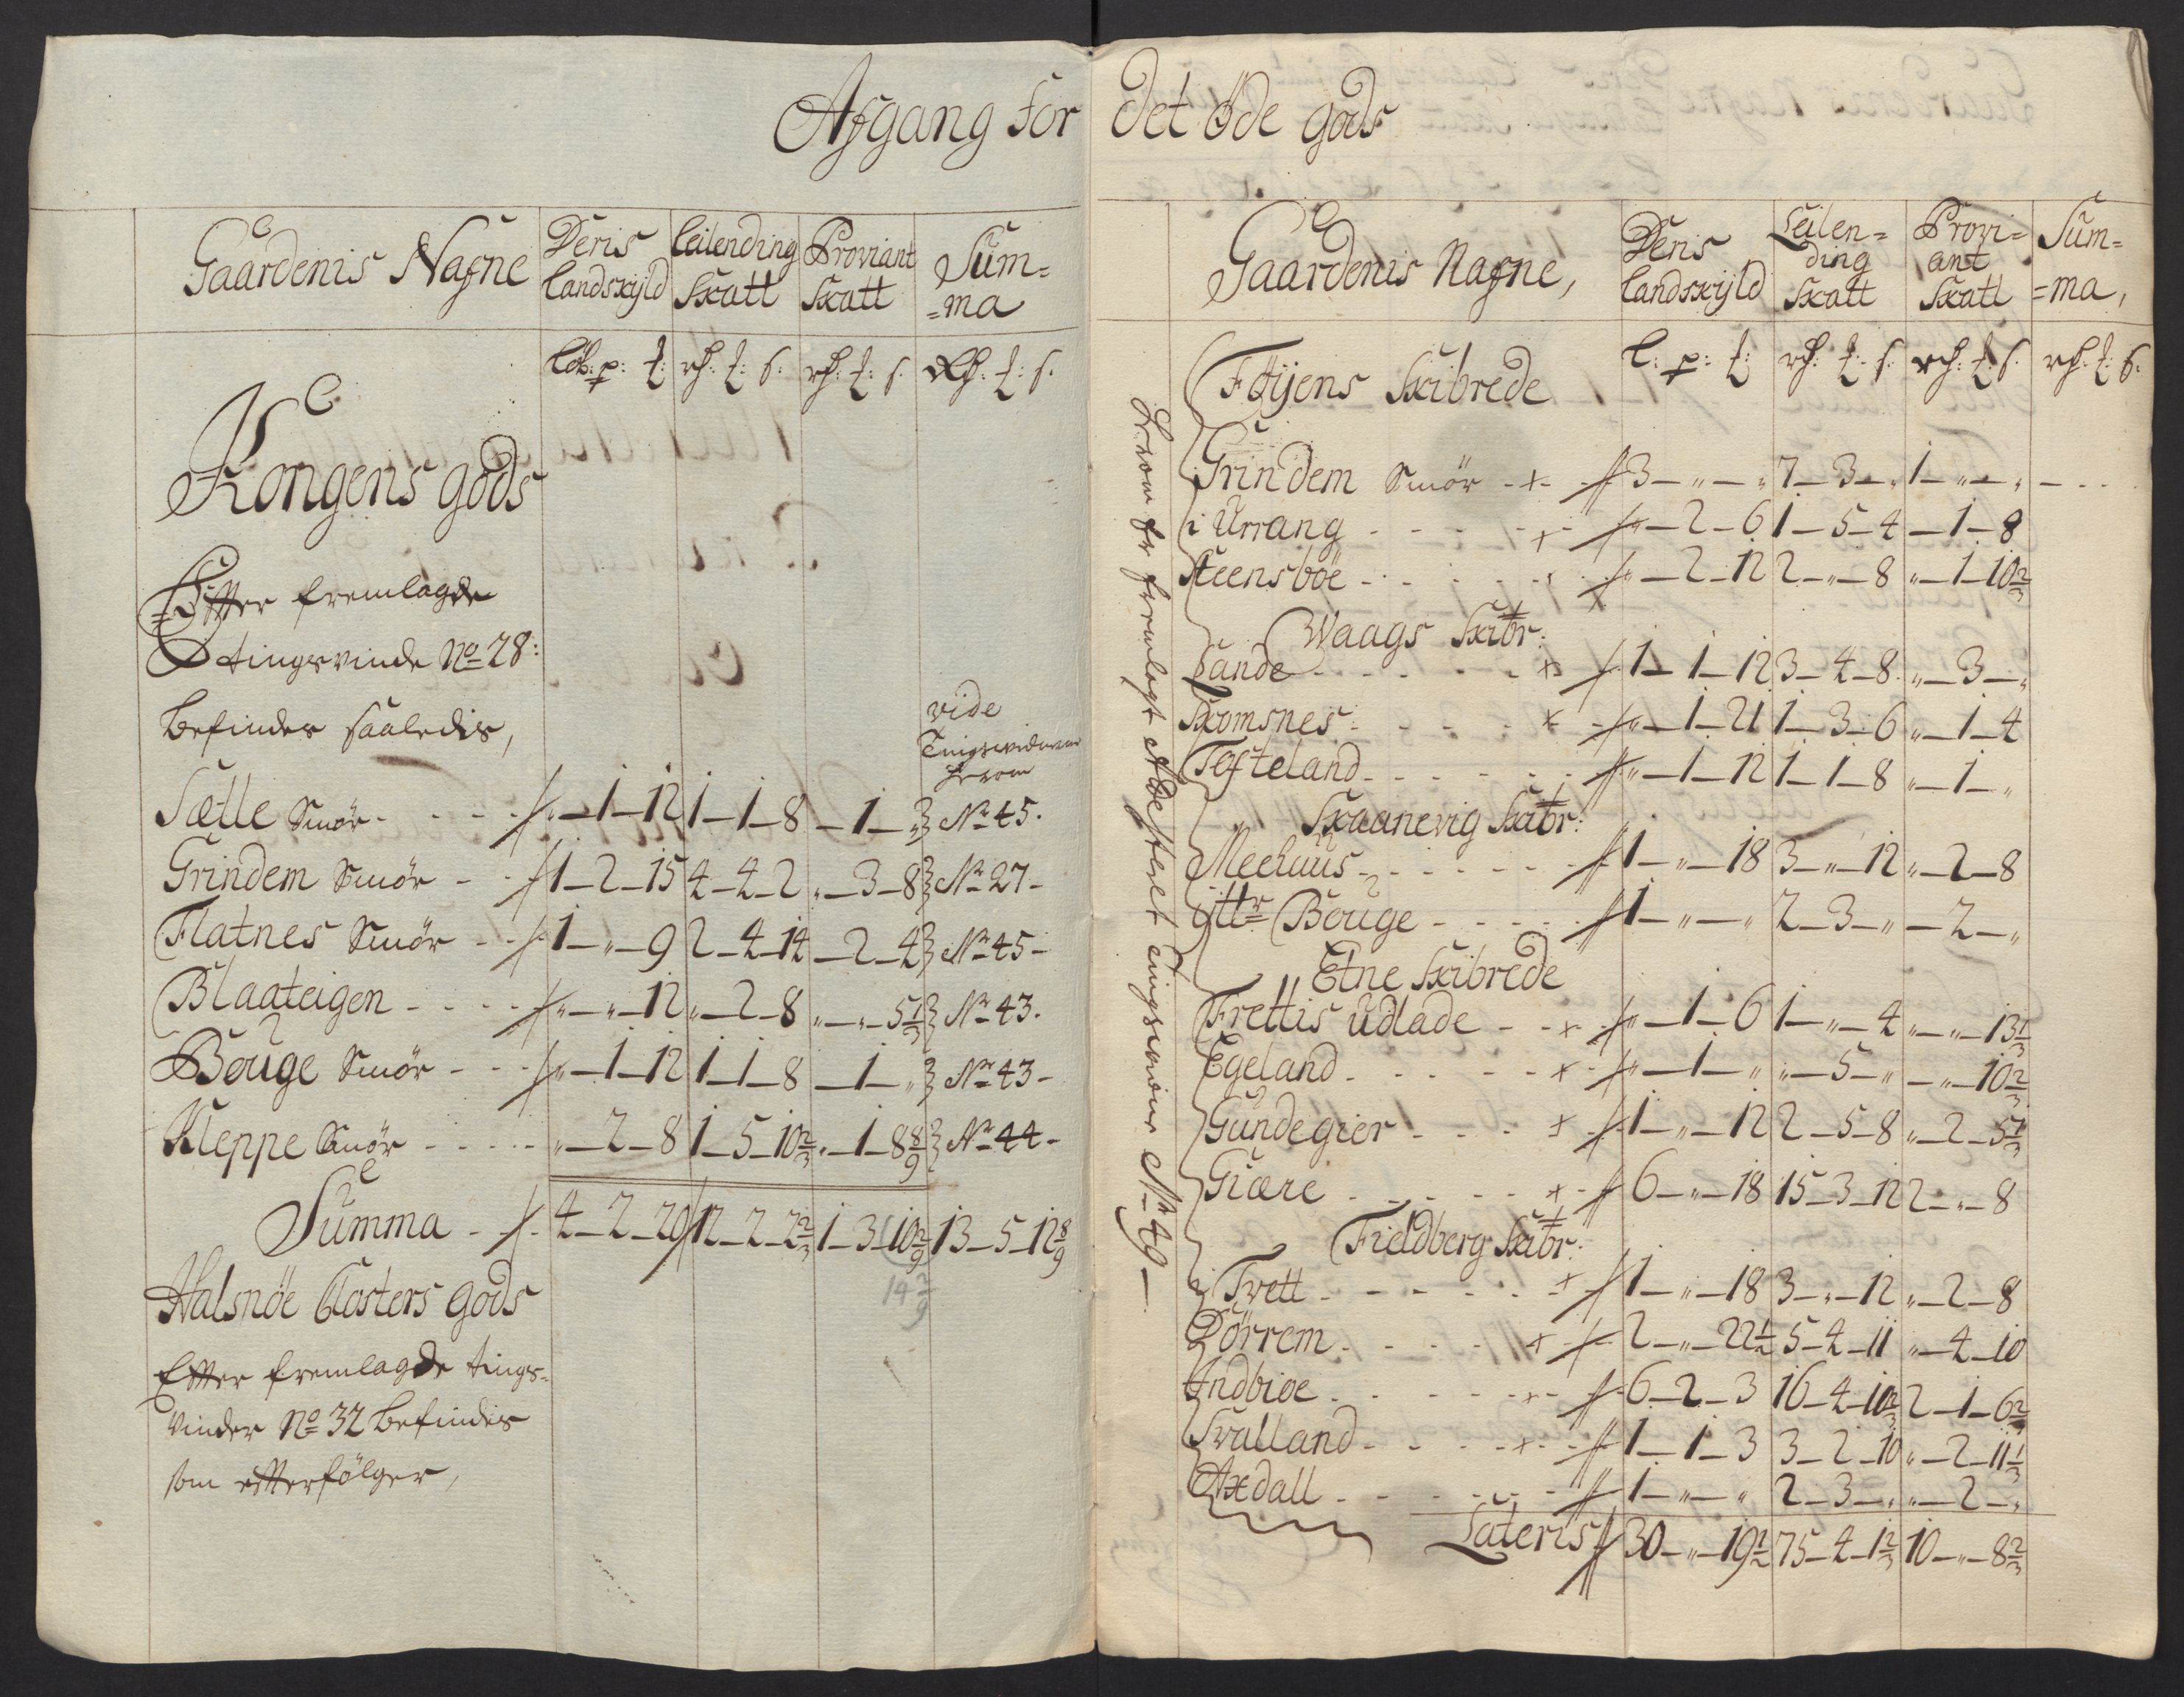 Afgang for Det Öde gods
Gaardenis Nafne | Deris Landskyld | Leilending Skatt | Proviant Skatt | Sum=
=ma
Löb: p: | rh: s. | rh: s. | Rh: s.
Kongens gods
Efter fremlagde
tingsvinde No 28:
befindes saaledis,
vide
Tingsvidner
herom
Sætle Smör - - - „-1-12 | 1-1-8 | -1-„ | Nr 45.
Grindem Smör - - 1-2-15 | 4-4-2 | „-3-8 | Nr 27-
Flatnes Smör - - 1-„-9 | 2-4-14 | -2-4 | Nr 45-
Blaateigen - - - „-„-12 | „-2-8 | „-„-5 1/3 | Nr 43.
Bouge Smör - - - „-1-12 | 1-1-8 | -1-„ | Nr 43-
Kleppe Smör - - - „-2-8 | 1-5-10 2/3 | „-1-8 8/9 | Nr 44-
Summa - - 4-2-20 | 12-2-2 2/3 | 1-3-10 2/9 | 13-5-12 8/9
14 2/9
Halsnöe Closters gods
Efter fremlagde tings=
vinder No 32 befindis
som efterfölger,
Gaardenis Nafne, | Deris Landskyld | Leilen=
ding
Skatt | Provi=
ant
Skatt | Sum=
=ma,
l: p: | rh: s. | rh: s. | rh: s.
Föyens Skibrede
Grindem Smör - + - 3-„-„ | 7-3-„ | 1-„-„
i Urrang - - - + „-2-6 | 1-5-4 | -1-8
Steensböe - - - „-2-12 | 2-„-8 | „-1-10 2/3
Waags Skibr:
Sande - - - + 1-1-12 | 3-4-8 | „-3-„
Skomsnes - - - + „-1-21 | 1-3-6 | „-1-4
Tofteland - - - „-1-12 | 1-1-8 | „-1-„
Skaanevig Skibr:
Meehuus - - - 1-„-18 | 3-„-12 | „-2-8
ittr Bouge - - - 1-„-„ | 2-3-„ | -2-„
Etne Skibrede
Frettis Udlade - - + „-1-6 | 1-„-4 | „-„-13 1/3
Egeland - - - + „-1-„ | „-5-„ | -„-10 2/3
Gundegier - - - + 1-„-12 | 2-5-8 | „-2-5 1/3
Giære - - - + 6-„-18 | 15-3-12 | 2-„-8
Fieldberg Skibr:
Tvett - - - + 1-„-18 | 3-„-12 | „-2-8
Dörrem - - - + 2-„-22 1/2 | 5-4-11 | „-4-10
Indbioe - - - + 6-2-3 | 16-4-10 2/3 | 2-1-6 2/3
Svalland - - - + 1-1-3 | 3-2-10 | „-2-11 1/3
Axdall - - - 1-„-„ | 2-3-„ | „-2-„
Lateris 30-„-19 1/2 | 75-4-1 2/3 | 10-„-8 2/3
Hvorom er fremlagt Attesteret tingsvidne Nr 49